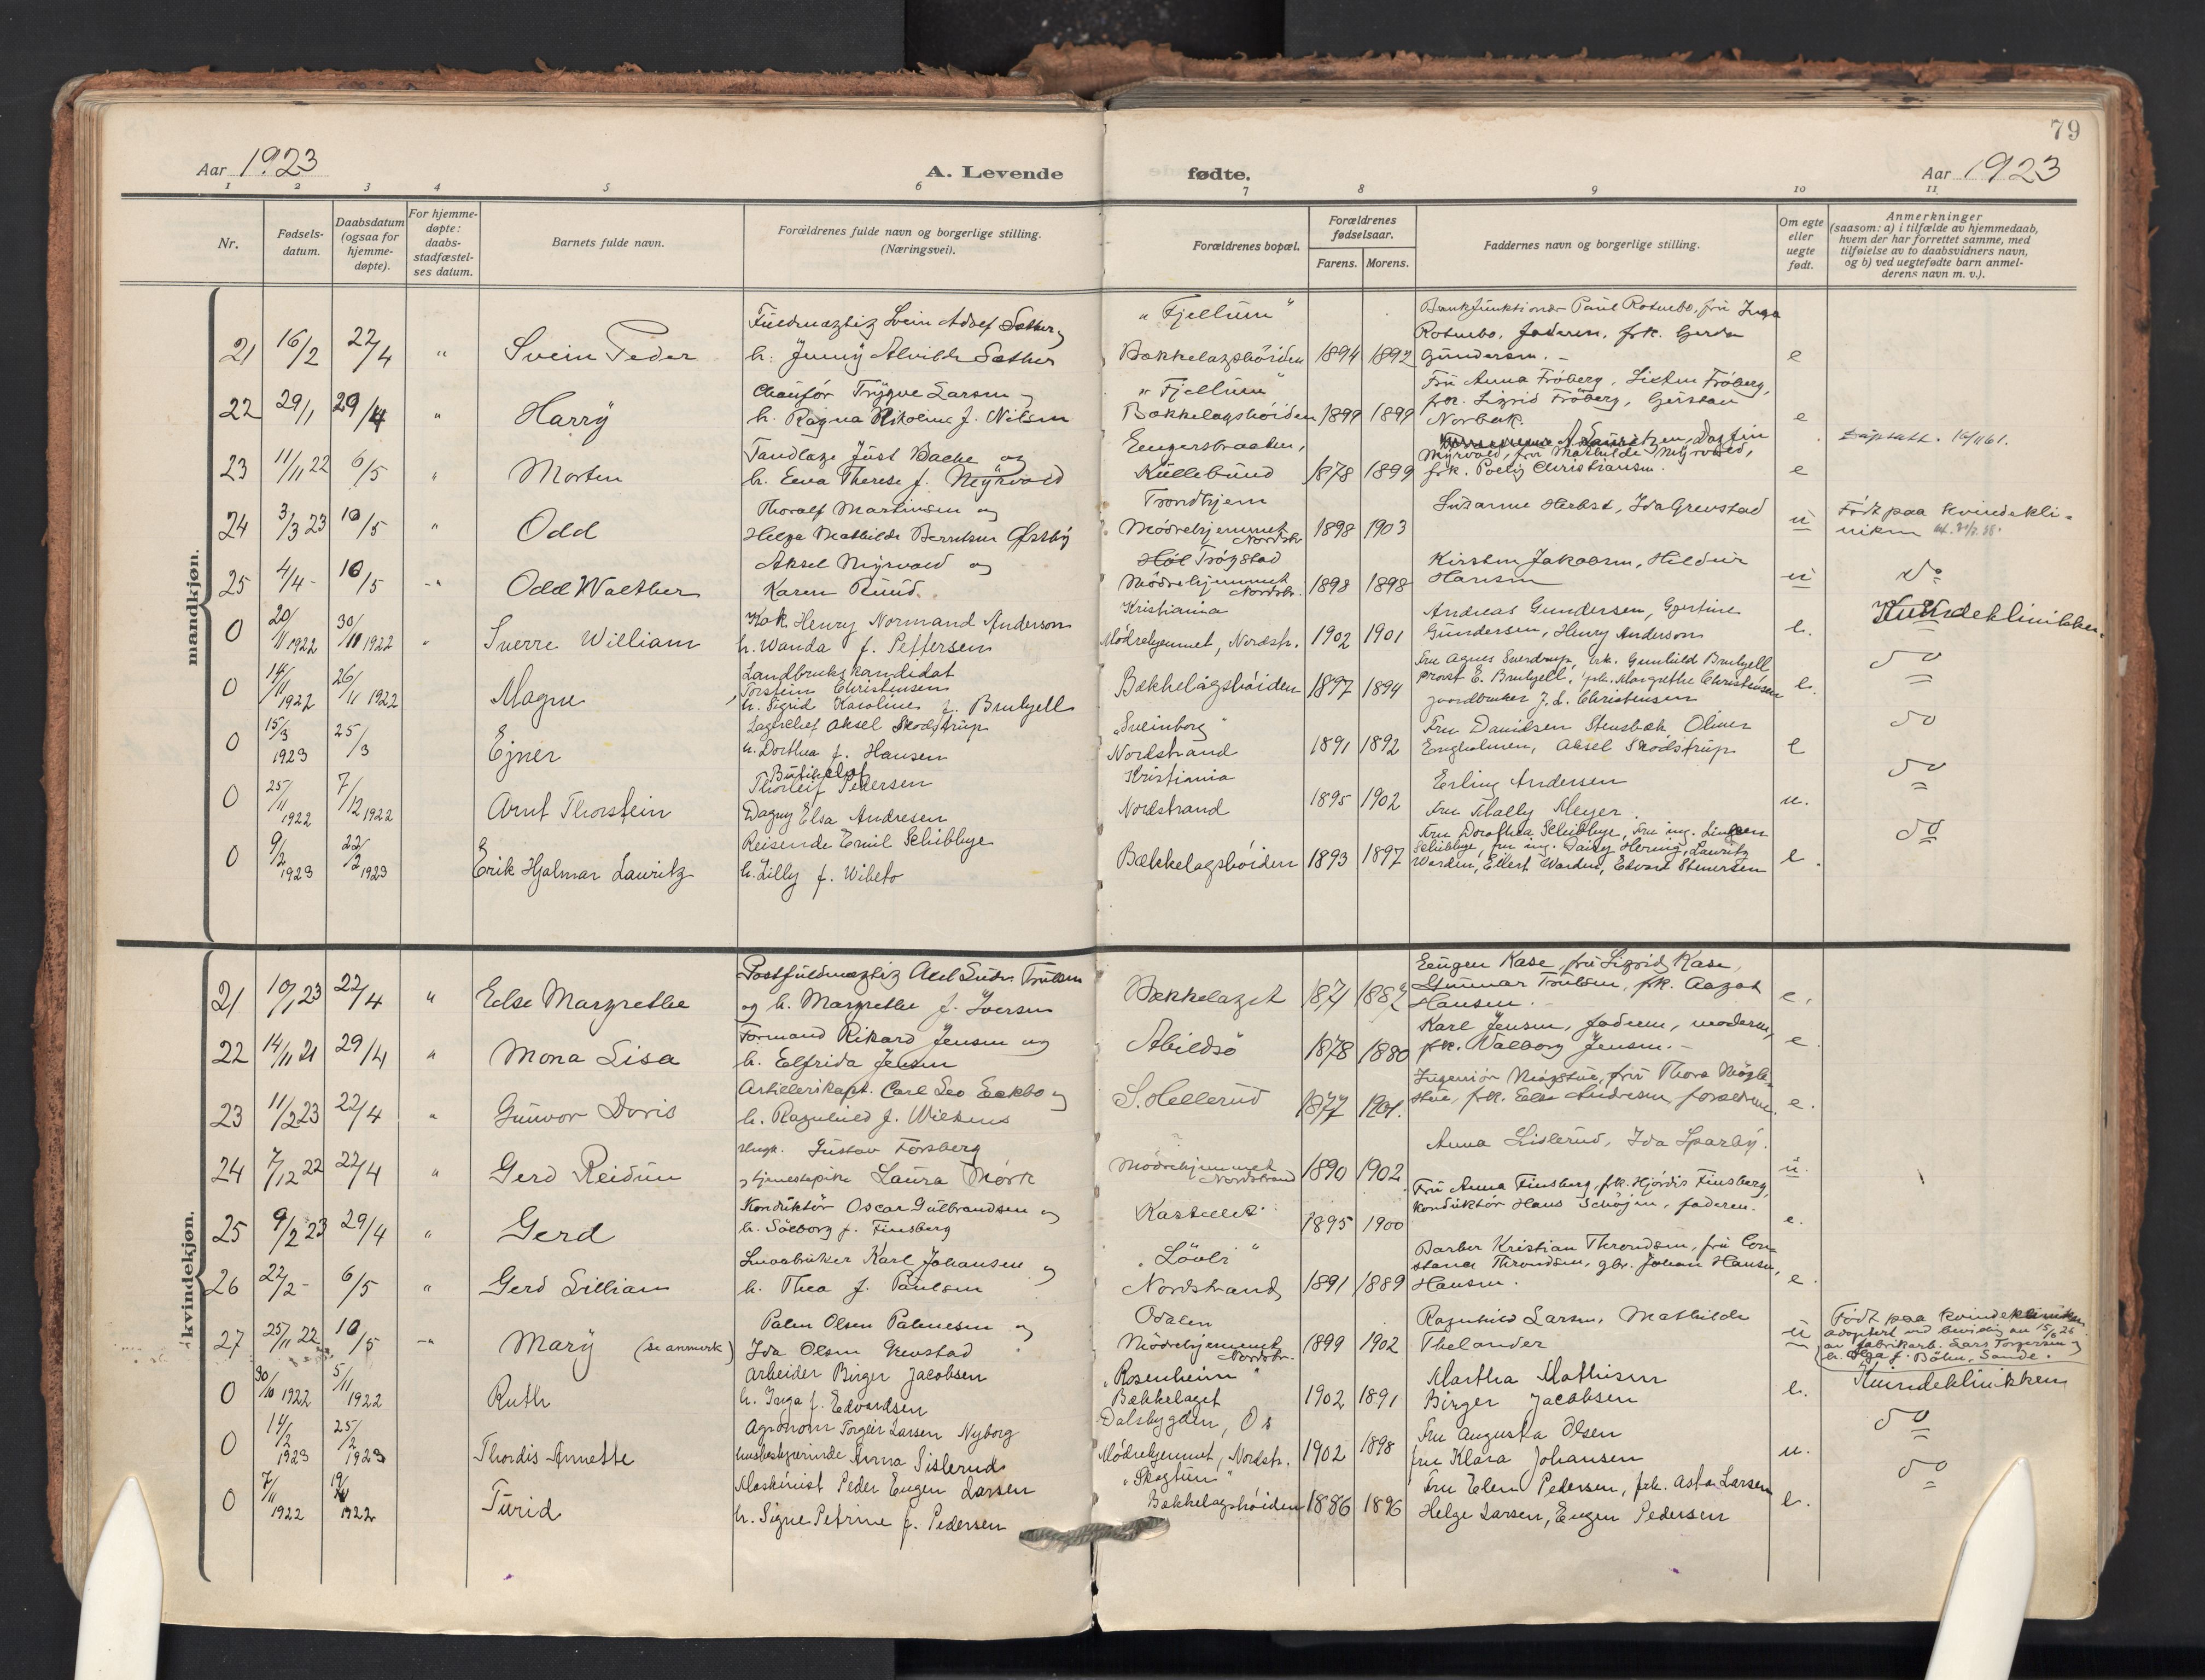 79
Aar 1923
A. Levende
fødte.
Aar 1923
1 2 3 4 5 6 7 8 9 10 11
Nr.
Fødsels-
datum.
Daabsdatum
(ogsaa for
hjemme-
døpte).
For hjemme-
døpte:
daabs-
stadfæstel-
ses datum.
Barnets fulde navn.
Forældrenes fulde navn og borgerlige stilling.
(Næringsvei).
Forældrenes bopæl.
Forældrenes
fødselsaar.
Farens. Morens.
Faddernes navn og borgerlige stilling.
Om egte
eller
uegte
født.
Anmerkninger
(saasom: a) i tilfælde av hjemmedaab,
hvem der har forrettet samme, med
tilføielse av to daabsvidners navn,
og b) ved uegtefødte barn anmel-
derens navn m. v.).
mandkjøn.
Fuldmægtig Svein Adolf Sæther
21 16/2 22/4 " Svein Peder h. Jenny Alvilde Sæther
"Fjellum"
Bækkelagshöiden 1894 1892
Gundersen. - e
Chauför Trygve Larsen og
22 29/1 29/4 " Harry h. Ragna Nikoline f. Nilsen
"Fjellum"
Bækkelagshöiden 1899 1899
Fru Anna Fröberg,
frk. Sigrid Fröberg,
e
Tandlæge Just Bache og
23 11/11 22 6/5 " Morten h. Eeva Therese f. Myrvold
Kullebund 1878 1899
Myrvold, fru Mathilde Myrvold,
frk. Christiansen. e
Thoralf Martinsen og
24 3/3 23 10/5 " Odd Helga Mathilde Berntsen Østby
Trondhjem
Mödrehjemmet Nordstr. 1898 1903
Susanne Herbst, Ida Grevstad u
Födt paa Kvindekli-
niken
Aksel Myrvold og
25 4/4 - 10/5 -"- Odd Walther Karen Ruud.
Trögstad
Mödrehjemmet Nordstr. 1898 1898
Kirsten Jakobsen, Hildur
Hansen u
Do
Kok Henry Normand Anderson
0 20/11 1922 30/11 1922 " Sverre William h. Wanda f. Pettersen
Kristiania
Mødrehjemmet, Nordstr. 1902 1901
Andreas Gundersen, Gjertine
Gundersen, Henry Anderson e.
Kvindeklinikken.
Landbrukskandidat
Torstein Christensen
0 14/11 1922 26/11 1922 Magne h. Sigrid Karoline f. Brutjell
Bækkelagshöiden 1897 1894
Fru Agnes Sverdrup, frk. Gunhild Brutjell
provst E. Brutjell, frk. Margrethe Christensen
gaardbruker J. L. Christensen e.
Do
Lagerchef Aksel Skodstrup
0 15/3 1923 25/3 Ejner h. Dorthea f. Hansen
"Sveinborg"
Nordstrand 1891 1892
Fru Davidsen Stensbæk Oliver
Engholmen, Aksel Skodstrup e
Do
Thorleif Pedersen
0 25/11 1922 7/12 1922 Arnt Thorstein Dagny Elsa Andresen
Kristiania
Nordstrand 1895 1902
Erling Andersen
Fru Mally Meyer. u.
Do
Reisende Emil Schibbye
0 9/2 1923 22/2 1923 Erik Hjalmar Lauritz h. Lilly f. Wibeto
Bækkelagshöiden 1893 1897
Fru Dorothea Schibbye, Fru ing.
Schibbye, fru ing. Daisy Hernig, Lauritz
Warden, Eilert Warden, Edvard Stenersen e.
Do
kvindekjøn.
21 10/1 23 22/4 " Else Margrethe og h. Margrethe f. Iversen
Bækkelaget 1871 1887
Eugen Kase, fru Sigrid Kase,
Gunnar Trulsen, frk. Aagot
Hansen. - e.
Formand Rikard Jensen og
22 14/11 21 29/4 " Mona Lisa h. Elfrida Jensen
Abildsö 1878 1880
Karl Jensen, faderen, moderen,
frk. Valborg Jensen. - e.
Artillerikapt. Carl Leo Eckbo og
23 11/2 23 22/4 " Gunvor Doris h. Ragnhild f. Wilkens
S. Hellerud 1877 1901.
frk. Else Andresen, forældrene. e.
Ungk. Gustav Forsberg
24 7/12 22 22/4 " Gerd Reidun tjenestepike Laura Mörk
Mödrehjemmet Nordstrand 1890 1902
Anna Lislerud, Ida Sparby.
u.
Konduktör Oscar Gulbrandsen og
25 9/2 23 29/4 " Gerd h. Sölborg f. Finsberg
Kastellet. 1895 1900
Fru Anna Finsberg, frk. Hjördis Finsberg,
Konduktör Hans Schöjen, faderen. e.
Karl Johansen og
26 22/2 - 6/5 " Gerd Lillian h. Thea f. Paulsen
"Lövli"
Nordstrand 1891 1889
Barber Kristian Throndsen, fru Con-
stance Throndsen, gbr. Johan Hansen,
Hansen. e.
Palm Olsen Palmesen og
27 25/11 22 10/5 -"- Mary (se anmerk) Ida Olsen Grevstad
Odalen
Mödrehjemmet Nordstr. 1899 1902
Ragnhild Larsen, Mathilde
Thelander u
Födt paa Kvindekliniken
adoptert ved bevilg. av 15/6 26
av fabrikarb. Lars Torgersen og
h. Olga f. Böhn, Sande.
Arbeider Birger Jacobsen
0 30/10 1922 5/11 1922 Ruth h. Inga f. Edvardsen
"Rosenheim"
Bækkelaget 1902 1891
Martha Mathisen
Birger Jacobsen e.
Kvindeklinikken
Agronom Torgeir Larsen Nyborg
0 14/2 1923 25/2 1923 Thordis Annette husbestyrerinde Anna Lislerud
Dalsbygden, Os
Mødrehjemmet, Nordstr. 1902 1898
Fru Augusta Olsen
fru Klara Johansen u.
Do
Maskinist Peder Eugen Larsen
0 7/11 1922 19/11 1922 Turid h. Signe Petrine f. Pedersen
"Skogtun"
Bækkelagshöiden 1886 1896
Fru Elen Pedersen, frk. Asta Larsen
Helge Larsen, Eugen Pedersen e.
Do